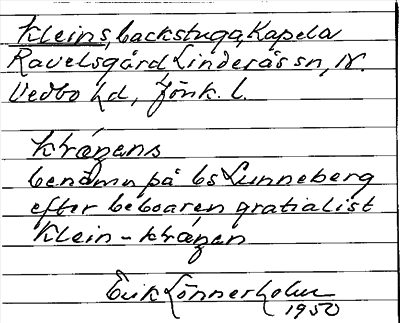 Kleins, backstuga, Kapela
Ravelsgård Linderås sn, N.
Vedbo hd, Jönk. l.
Krázens
benämn på bs Lunneberg
efter beboaren gratialist
Klein-Krázen
Erik Lönnerholm
1950